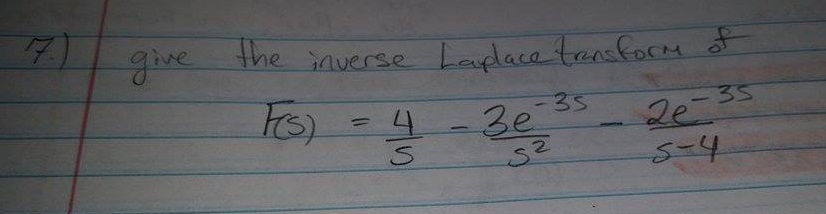 7.) give the inverse Laplace transform of
F(s) = 4/s - 3e^-3s/s^2 - 2e^-3s/s-4